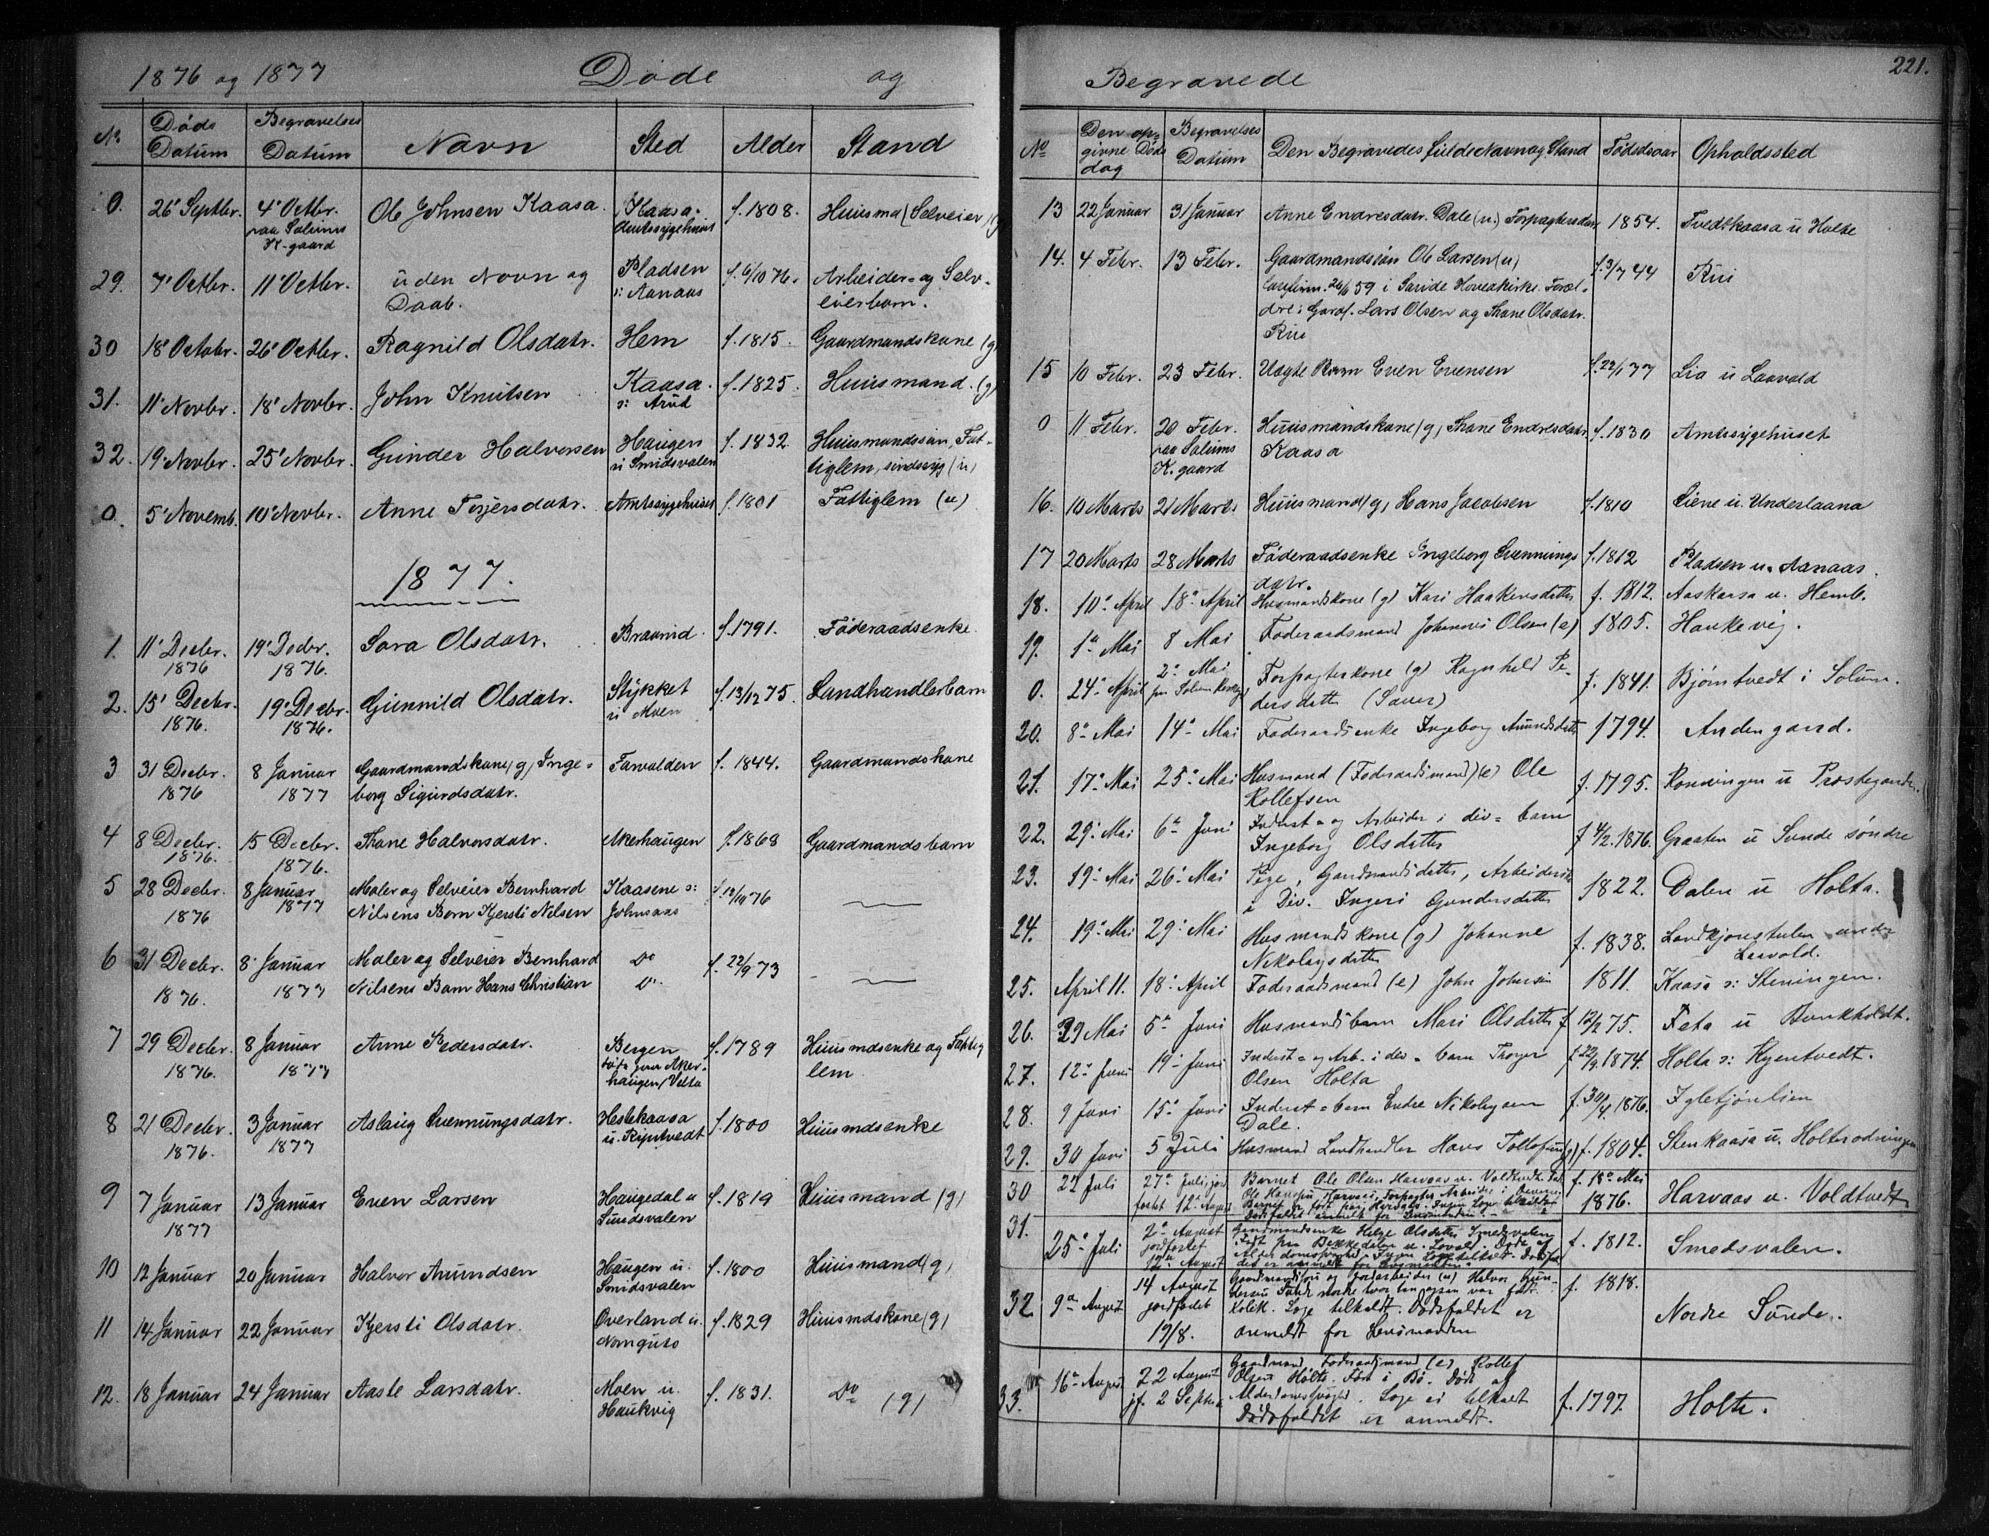 1876 og 1877 Døde og
No Døds Datum Begravelses Datum Navn Sted Alder Stand
0. 26' Septbr. 4' Octbr. Ole Johnsen Kaasa. Kaasa f. 1808. Huusma (Selveier)
paa Solums Amtssygehuset
K-gaard
29. 7' Octbr. 11' Octbr. uden Navn og Pladsen f. 6/10 76. Arbeider- og Selv-
Daab. s: Aanaas eierbarn.
30 18' Octobr. 26' Octbr. Ragnild Olsdatr. Hem f. 1815. Gaardmandskone (g)
31. 11' Novbr. 18' Novbr. John Knutsen Kaasa f. 1825. Huusmand. (g)
s: Arud
32. 19' Novbr. 25' Novbr. Gunder Halvorsen Haugen f. 1832 Huusmandssøn, Fat-
u Smidsvalen tiglem, sindssyg (u)
0. 5' Novemb. 10' Novbr. Anne Torjersdatr. Amtssygehuset f. 1801 Fattiglem (u)
1877.
1. 11' Decbr. 19' Decbr. Sara Olsdatr. Braarud f. 1791. Føderaadsenke
1876 1876.
2. 15' Decbr. 19' Decbr. Gunnild Olsdatr. Stykket f. 13/12 75. Landhandlerbarn
1876. 1876. u Moen
3 31 Decbr. 8 Januar Gaardmandskone (g) Inge- Farvolden f. 1844. Gaardmandskone
1876 1877 borg Sigurdsdatr.
4 8 Decbr. 15 Decbr. Thone Halvorsdatr. Akerhaugen f. 1868 Gaardmandsbarn
1876. 1876.
5 28 Decbr. 8 Januar Maler og Selveier Bernhard Kaasene s: f. 12/10 76
1876 1877 Nilsens Barn Kjersti Nilsen Johnsaas
6 31 Decbr. 8' Januar Maler og Selveier Bernhard Do f. 22/9 73
1876. 1877 Nilsens Barn Hans Christian Do
7 29 Decbr. 8 Januar Anne Pedersdatr. Bergen f. 1789 Huusmdsenke og Fattig
1876. 1877 lem
haugen/Vesta
8 21 Decbr. 3 Januar Aslaug Svennungsdatr. Hestekaasa f. 1800 Huusmdsenke
1876. 1877 u. Kjntvedt
9 7 Januar 13 Januar Even Larsen Haugedal u f. 1819 Huusmand (g)
1877 Sundsvalen
10 12 Januar 20 Januar Halvor Amundsen Haugen u. f. 1800 Huusmand (g)
Smidsvalen
11 14 Januar 22 Januar Kjersti Olsdatr. Overland u. f. 1829 Huusmdskone (g)
12. 18 Januar 24 Januar Aaste Larsdatr. Moen u. f. 1831. Do (g)
Haukvig
Begravede 221.
No Den op- givne Døds dag Begravelses Datum Den Begravedes fulde Navn og Stand Fødselsaar Opholdssted
13 22 Januar 31 Januar Anne Endresdatr. Dale (u.) Forpagtersdatr 1854. Tvedtkaasa u Holte
14. 4 Febr. 13 Febr. Gaardmandssøn Ole Larsen (u) f. 3/7 44 Rui
Confirm. 26/6 59 i Saude Hovedkirke. Foræl-
dre: Gardf. Lars Olsen og Thone Olsdatr.
Rui
15 10 Febr. 23 Febr. Uægte Barn Even Evensen f. 22/1 77 Lia u Laavald
0 11 Febr. 20 Febr. Huusmandskone (g) Thone Endresdatr f. 1830 Amtssygehuset
paa Solums Kaasa
K.gaard
16. 10 Marts 21 Marts Huusmand (g) Hans Jacobsen f. 1810 Liene u. Underlaana
17 20 Marts 28 Marts Føderaadsenke Ingeborg Svennungs f. 1812 Pladsen u. Aanaas.
datr.
18. 10. April 18. April Husmandskone (g) Kari Haakensdatter f. 1812. Aaskaasa u. Hemb.
19. 1ste Mai 8 Mai Foderaadsmand Johannes Olsen (e) 1805. Haukevig.
0. 24. April 2. Mai Forpagterkone (g) Ragnhild Pe- f. 1841. Bjørntvedt i Solum.
paa Solum Kirkegd dersdatter (Sauer)
20. 8. Mai 14. Mai Foderaadsenke Ingeborg Amundsdatter 1794. Andengaard.
21. 17. Mai 25. Mai Husmand (Foderaadsmand) (e) Ole f. 1795. Roeningen u Prestegaarden
Rollefsen
22. 29. Mai 6te Juni Inderst- og Arbeider i div- barn f 4/2 1876. Graaten u Sunde søndre
Ingeborg Olsdatter
23. 19. Mai 26. Mai Pige, Gardmandsdatter, Arbeiderske 1822. Dalen u Holta.
i Div. Ingeri Gundersdatter
24. 19. Mai 29. Mai Husmandskone (g) Johanne f. 1838. under
Nikolaysdatter
25. April 11. 18. April Foderaadsmand (e) John Johnsen 1811. Kaasa s: Steningen.
26. 29 Mai 5te Juni Husmandsbarn Mari Olsdatter f 12/2 75. Feta u Bunkholdt.
27. 12. Juni 19. Juni Inderst- og Arb. i div- barn Thorger f. 22/9 1874. Holta s: Kjentvedt.
Olsen Holta
28. 9 Juni 15. Juni Inderst- barn Endre Nikolaysen f. 30/4 1876.
Dale.
29. 30 Juni 5 Juli Husmand Landhandler Hans Tollefsen (g) f. 1804. Stenkaasa u. Holterødningen
30 22 Juli 27. Juli jord Barnet Ole Olsen Harvaas u. Voldtvedt f. 18. Mai
fæstet 12. August 1876. Harvaas u. Voldtvedt
31. 25. Juli 2. August Gaardmandsenke Helge Olsdatter Smedsvalen f. 1812. Smedsvalen.
jordfæstet Født paa Bekkedalen u. Lovald. Døde af
12. August Alderdomssvaghed. Ingen Læge tilkaldt. Dødsf.
det er anmeldt for Lensmanden.
32 9. August 14 August Gaardmandssøn og Jordarbeider (u) Halvor Gun- f. 1818.
jordfæstet dersen Sunde nordre
19/8. Kolik. Læge tilkaldt. Dødsfaldet er Nordre Sunde.
anmeldt for Lensmanden
33. 16. August 22 August Gaardmand Foderaadsmand (e) Rollef
jf. 2 Septbr Olsen Holte. Født i Bø. Døde af f. 1797. Holte.
Alderdomssvaghed. Læge ei tilkaldt
Dødsfaldet er anmeldt.